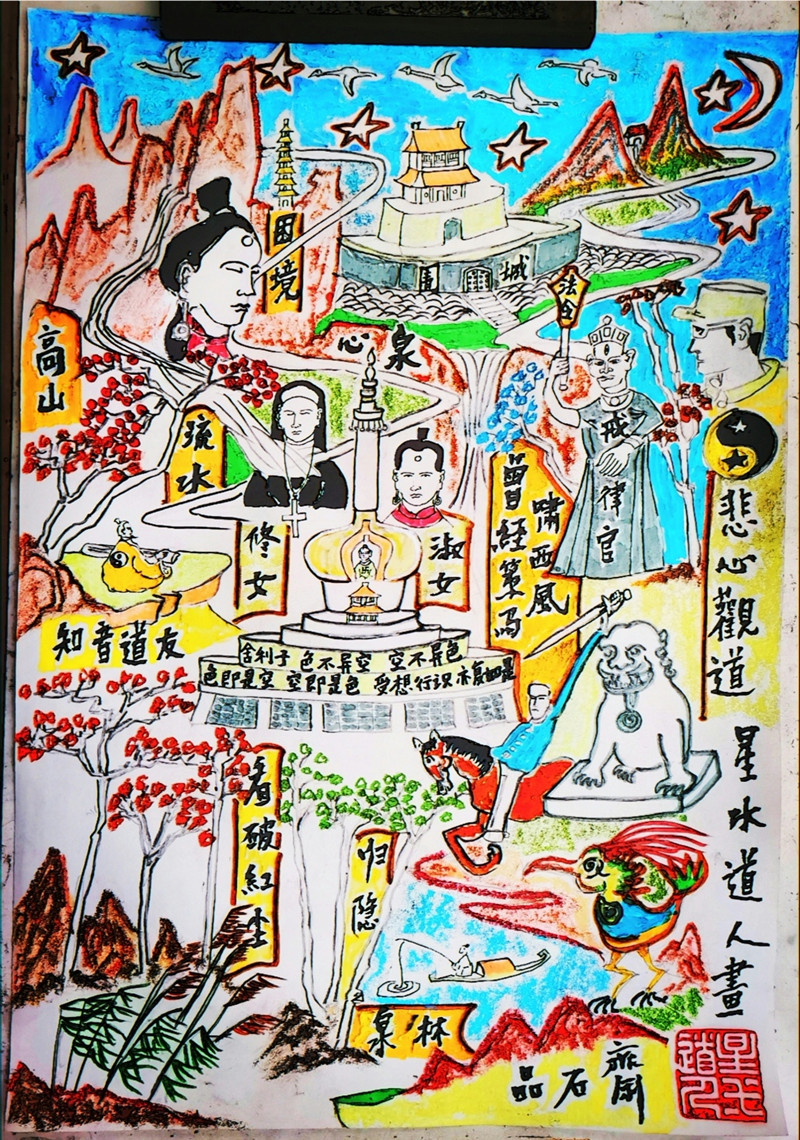 困境
围城
高山
心泉
法令
流水
戒律官
修女
淑女
曾經策馬
嘯西風
悲心觀道
知音道友
舍利子 色不异空 空不异色
色即是空 空即是色 受想行识 亦复如是
看破紅尘
归隐
林泉
星水道人畫
品石齋